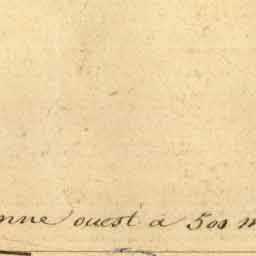 nne ouest à 500 m